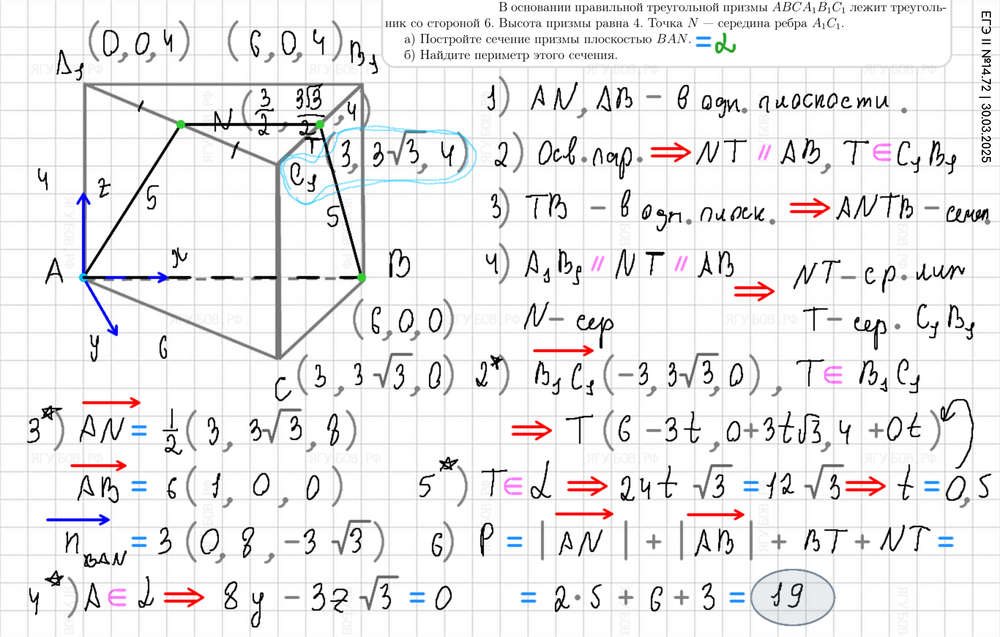 В основании правильной треугольной призмы ABCA₁B₁C₁ лежит треуголь-
ник со стороной 6. Высота призмы равна 4. Точка N — середина ребра A₁C₁.
а) Постройте сечение призмы плоскостью BAN. = α
б) Найдите периметр этого сечения.
ЕГЭ II №14.72 | 30.03.2025
(0, 0, 4) (6, 0, 4)
A₁ B₁
N (3/2, 3√3/2, 4)
T
C₁ (3, 3√3, 4)
4 z 5 5
A x B
y 6 (6, 0, 0)
C (3, 3√3, 0)
1) AN, AB – в одн. плоскости.
2) Осн. пар. ⇒ NT ∥ AB, T ∈ C₁B₁
3) TB – в одн. плоск. ⇒ ANTB – сечен.
4) A₁B₁ ∥ NT ∥ AB
N – сер
⇒ NT – ср. лин
T – сер. C₁B₁
2*) B₁C₁ (−3, 3√3, 0), T ∈ B₁C₁
⇒ T (6 − 3t, 0 + 3t√3, 4 + 0t)
3*) AN = ½ (3, 3√3, 8)
AB = 6 (1, 0, 0)
n BAN = 3 (0, 8, −3√3)
4*) A ∈ α ⇒ 8y − 3z√3 = 0
5*) T ∈ α ⇒ 24t√3 = 12√3 ⇒ t = 0,5
6) P = |AN| + |AB| + BT + NT =
= 2·5 + 6 + 3 = 19